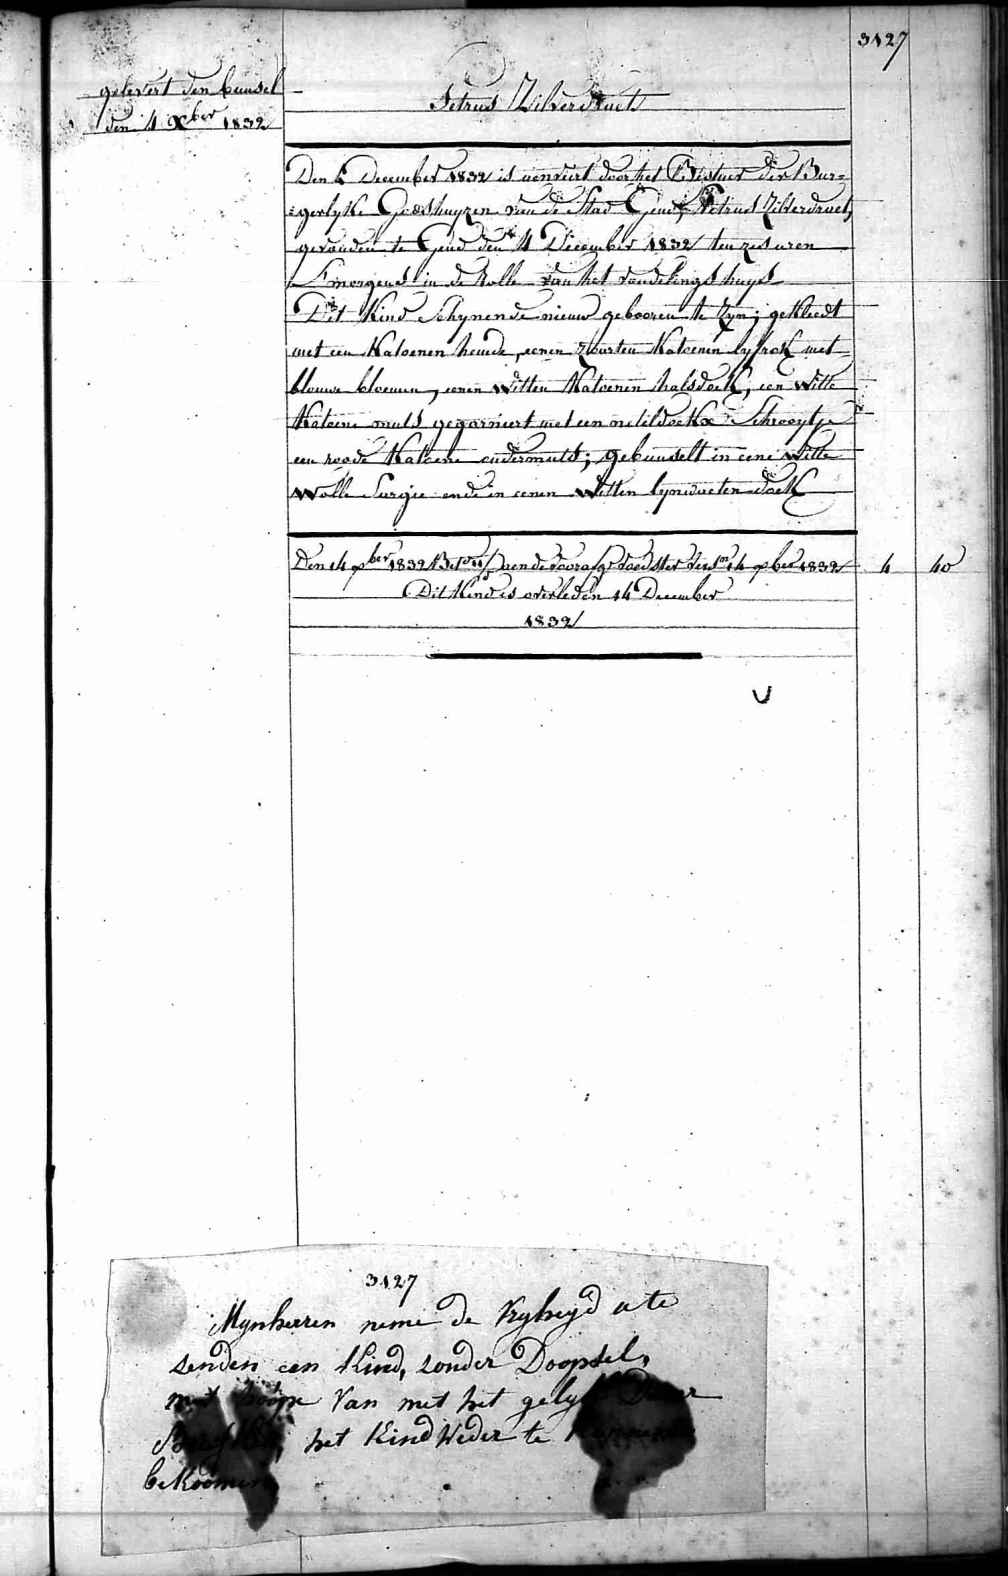 3127
gelevert den bunsel
den 4 Xber 1832
Petrus Zilverdraet
Den 4 December 1832 is aenveirt door het Bestuer der Bur=
=gerlyke Godshuyzen van de Stad Gend, Petrus Zilverdraet,
gevonden te Gend den 4 December 1832 ten zes uren
S'morgens in de Rolle van het vondelings huys
Dit Kind Schynende nieuw gebooren te Zyn; gekleedt
met een Katoenen hemde, eenen zwarten Katoenen lyfrok met
blauwe bloemen, eenen Witten Katoenen halsdoek, een Witte
Katoene muts gegarniert met een neteldoekx Schrooytje
een roode Katoene ondermuts; gebunselt in eene Witte
Wolle Sargie ende in eenen Witten lynwaeten doek
Den 14 xber 1832 aen de voedster 14 xber 1832 4 40
Dit Kind is overleden 14 December
1832
3127
Mynheeren neme de Vryheyd u te
senden een Kind, sonder Doopsel,
met hoope Van met het gelyk
het Kind Weder te
bekoomen